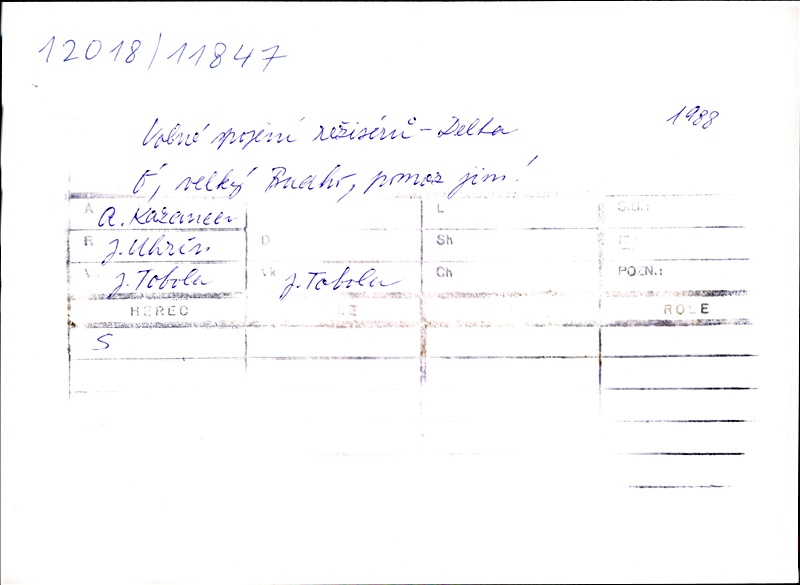 12018/11847
Volné spojení režisérů – Delta 1988
Ó, velký Budho, pomoz jim!
A A. Kazancev L S.G.:
R J. Uhrin D Sh
V J. Tobola Vk J. Tobola Ch POZN.:
HEREC ROLE
S